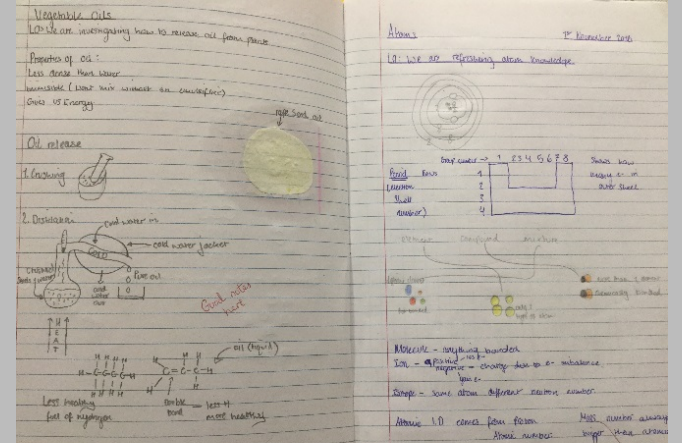 Vegetable Oils
LO: We are investigating how to release oil from plants
Properties of Oil:
Less dense than water
immiscible (wont mix without an emulsifier)
Gives us Energy
rape seed oil
Oil release
1. Crushing
2. Distillation
cold water in
cold water jacket
Crushed
Pure oil
cold
water
out
Good notes
here
H E A T
oil (liquid)
H H H H
H-C-C-C-C-H
H H H H
C=C-C-H
Less healthy
full of hydrogen
double
bond
less H
more healthy
Atoms
1st November 2016
LO: We are refreshing atom knowledge
Group number → 1 2 3 4 5 6 7 8
Period Rows 1
2
Shell 3
number) 4
Shows how
many e- in
outer shell
Element Compound mixture
more than 1
Chemically bonded
only 1
type of atom
Molecule - anything bonded
Ion - positive
negative - charge due to e- imbalance
Isotope - same atom different neutron number
Atomic I.D comes from Proton
Atomic number
Mass number always
bigger than atomic